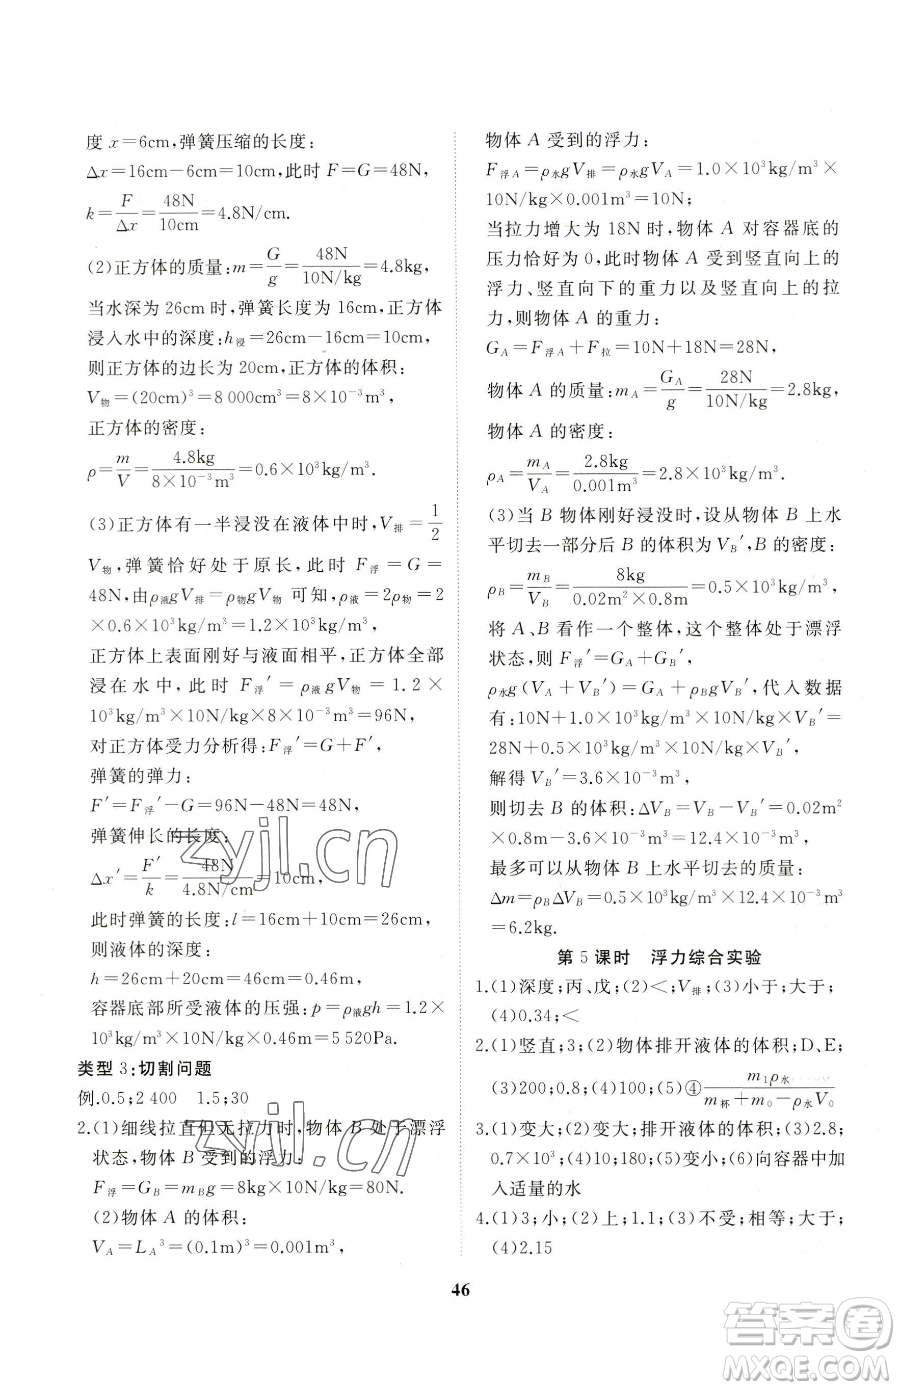 度 x=6cm,弹簧压缩的长度:
Δx=16cm−6cm=10cm,此时 F=G=48N,
k=F/Δx=48N/10cm=4.8N/cm.
(2)正方体的质量:m=G/g=48N/10N/kg=4.8kg,
当水深为26cm时,弹簧长度为16cm,正方体
浸入水中的深度:h浸=26cm−16cm=10cm,
则正方体的边长为20cm,正方体的体积:
V物=(20cm)³=8 000cm³=8×10⁻³m³,
正方体的密度:
ρ=m/V=4.8kg/8×10⁻³m³=0.6×10³kg/m³.
(3)正方体有一半浸没在液体中时,V排=1/2
V物,弹簧恰好处于原长,此时 F浮=G=
48N,由ρ液gV排=ρ物gV物 可知,ρ液=2ρ物=2
×0.6×10³kg/m³=1.2×10³kg/m³,
正方体上表面刚好与液面相平,正方体全部
浸在水中,此时 F浮′=ρ液gV物=1.2×
10³kg/m³×10N/kg×8×10⁻³m³=96N,
对正方体受力分析得:F浮′=G+F′,
弹簧的弹力:
F′=F浮′−G=96N−48N=48N,
弹簧伸长的长度:
Δx′=F′/k=48N/4.8N/cm=10cm,
此时弹簧的长度:l=16cm+10cm=26cm,
则液体的深度:
h=26cm+20cm=46cm=0.46m,
容器底部所受液体的压强:p=ρ液gh=1.2×
10³kg/m³×10N/kg×0.46m=5 520Pa.
类型3:切割问题
例.0.5;2 400 1.5;30
2.(1)细线拉直但无拉力时,物体 B 处于漂浮
状态,物体 B 受到的浮力:
F浮=GB=mBg=8kg×10N/kg=80N.
(2)物体 A 的体积:
VA=LA³=(0.1m)³=0.001m³,
物体 A 受到的浮力:
F浮A=ρ水gV排=ρ水gVA=1.0×10³kg/m³×
10N/kg×0.001m³=10N;
当拉力增大为18N时,物体 A 对容器底的
压力恰好为0,此时物体 A 受到竖直向上的
浮力、竖直向下的重力以及竖直向上的拉
力,则物体 A 的重力:
GA=F浮A+F拉=10N+18N=28N,
物体 A 的质量:mA=GA/g=28N/10N/kg=2.8kg,
物体 A 的密度:
ρA=mA/VA=2.8kg/0.001m³=2.8×10³kg/m³.
(3)当 B 物体刚好浸没时,设从物体 B 上水
平切去一部分后 B 的体积为VB′,B 的密度:
ρB=mB/VB=8kg/0.02m²×0.8m=0.5×10³kg/m³,
将 A、B 看作一个整体,这个整体处于漂浮
状态,则 F浮′=GA+GB′,
ρ水g(VA+VB′)=GA+ρBgVB′,代入数据
有:10N+1.0×10³kg/m³×10N/kg×VB′=
28N+0.5×10³kg/m³×10N/kg×VB′,
解得VB′=3.6×10⁻³m³,
则切去 B 的体积:ΔVB=VB−VB′=0.02m²
×0.8m−3.6×10⁻³m³=12.4×10⁻³m³,
最多可以从物体 B 上水平切去的质量:
Δm=ρBΔVB=0.5×10³kg/m³×12.4×10⁻³m³
=6.2kg.
第5课时 浮力综合实验
1.(1)深度;丙、戊;(2)<;V排;(3)小于;大于;
(4)0.34;<
2.(1)竖直;3;(2)物体排开液体的体积;D、E;
(3)200;0.8;(4)100;(5)④m₁ρ水/m杯+m₀−ρ水V₀
3.(1)变大;(2)变大;排开液体的体积;(3)2.8;
0.7×10³;(4)10;180;(5)变小;(6)向容器中加
入适量的水
4.(1)3;小;(2)上;1.1;(3)不受;相等;大于;
(4)2.15
46
zyjl.cn
答案圈
MXQE.COM